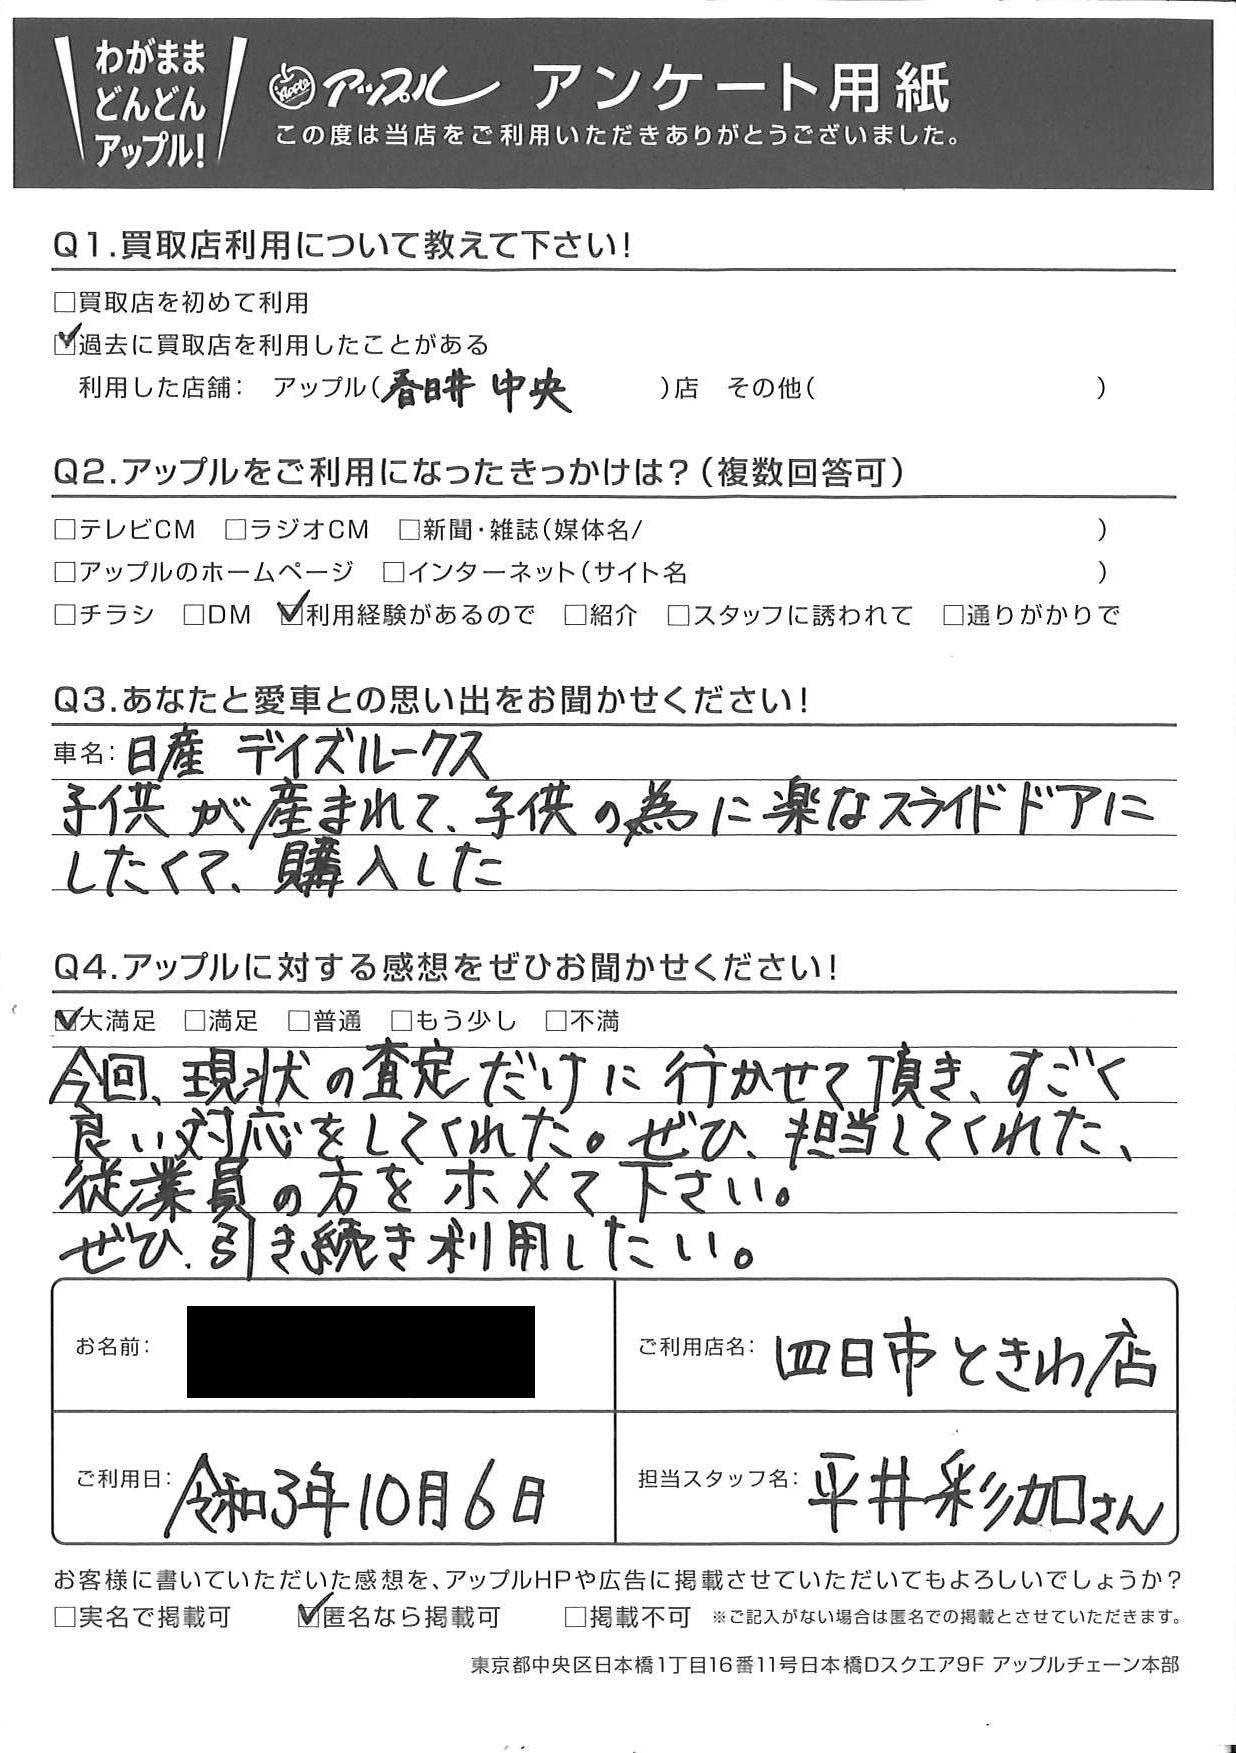 わがまま
どんどん
アップル!
Apple アップル アンケート用紙
この度は当店をご利用いただきありがとうございました。
Q1.買取店利用について教えて下さい!
□買取店を初めて利用
☑過去に買取店を利用したことがある
利用した店舗: アップル(春日井 中央 )店 その他( )
Q2.アップルをご利用になったきっかけは?(複数回答可)
□テレビCM □ラジオCM □新聞・雑誌(媒体名/ )
□アップルのホームページ □インターネット(サイト名 )
□チラシ □DM ☑利用経験があるので □紹介 □スタッフに誘われて □通りがかりで
Q3.あなたと愛車との思い出をお聞かせください!
車名: 日産 デイズルークス
子供が産まれて、子供の為に楽なスライドドアに
したくて、購入した
Q4.アップルに対する感想をぜひお聞かせください!
☑大満足 □満足 □普通 □もう少し □不満
今回、現状の査定だけに行かせて頂き、すごく
良い対応をしてくれた。ぜひ、担当してくれた、
従業員の方をホメて下さい。
ぜひ、引き続き利用したい。
お名前:
ご利用店名: 四日市ときわ店
ご利用日: 令和3年10月6日
担当スタッフ名: 平井彩加さん
お客様に書いていただいた感想を、アップルHPや広告に掲載させていただいてもよろしいでしょうか?
□実名で掲載可 ☑匿名なら掲載可 □掲載不可 ※ご記入がない場合は匿名での掲載とさせていただきます。
東京都中央区日本橋1丁目16番11号日本橋Dスクエア9F アップルチェーン本部